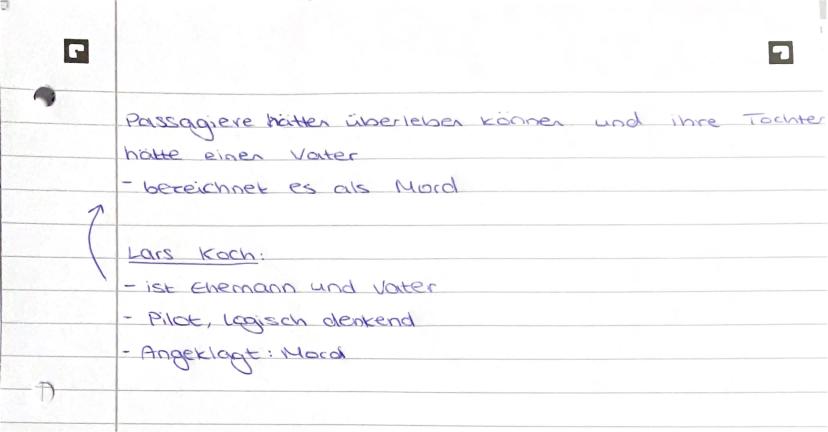 Passagiere hätten überleben können und ihre Tochter
hätte einen Vater
- bezeichnet es als Mord
Lars Koch:
- ist Ehemann und Vater
- Pilot, logisch denkend
- Angeklagt: Mord